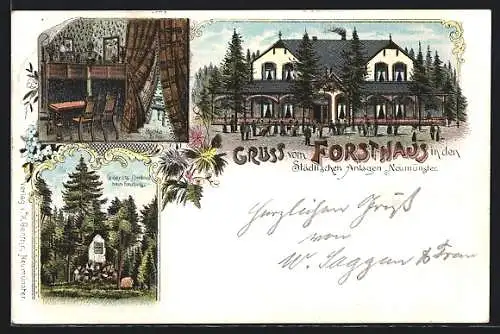 GRUSS vom FORSTHAUS in den
Städtischen Anlagen Neumünster.
Denkmal
beim Forsthaus.
Herzlichen Gruß
von
W. Saggau & Frau
Verlag v.
Neumünster.